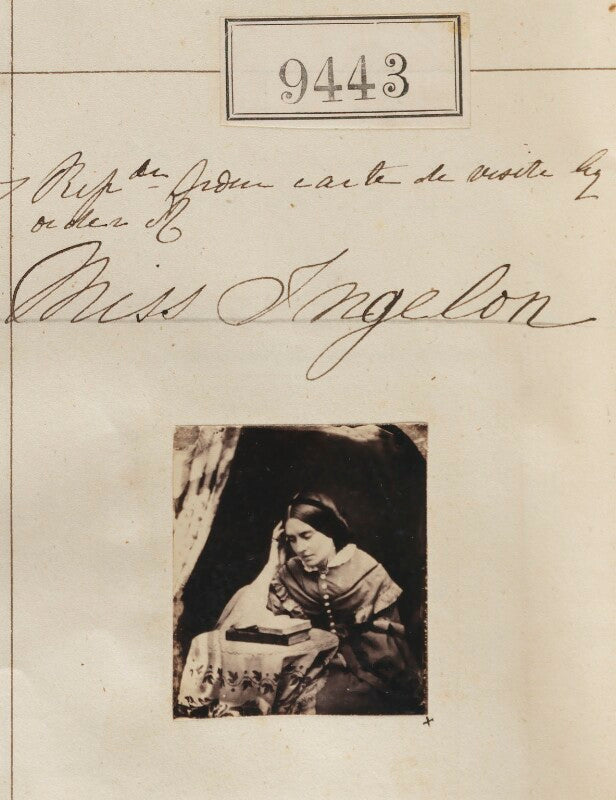 9443
Repdn from carte de visite by
order of
Miss Ingelon